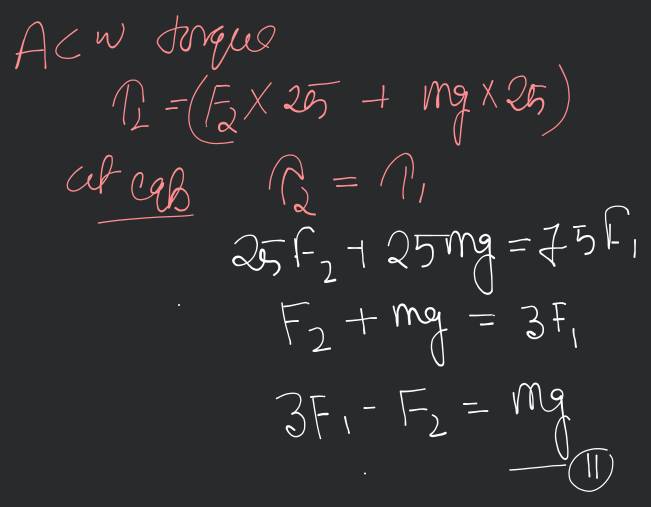 ACW torque
τ₂ = (F₂ × 25 + mg × 25)
at eqb τ₂ = τ₁
25F₂ + 25mg = 75F₁
F₂ + mg = 3F₁
3F₁ - F₂ = mg
— II